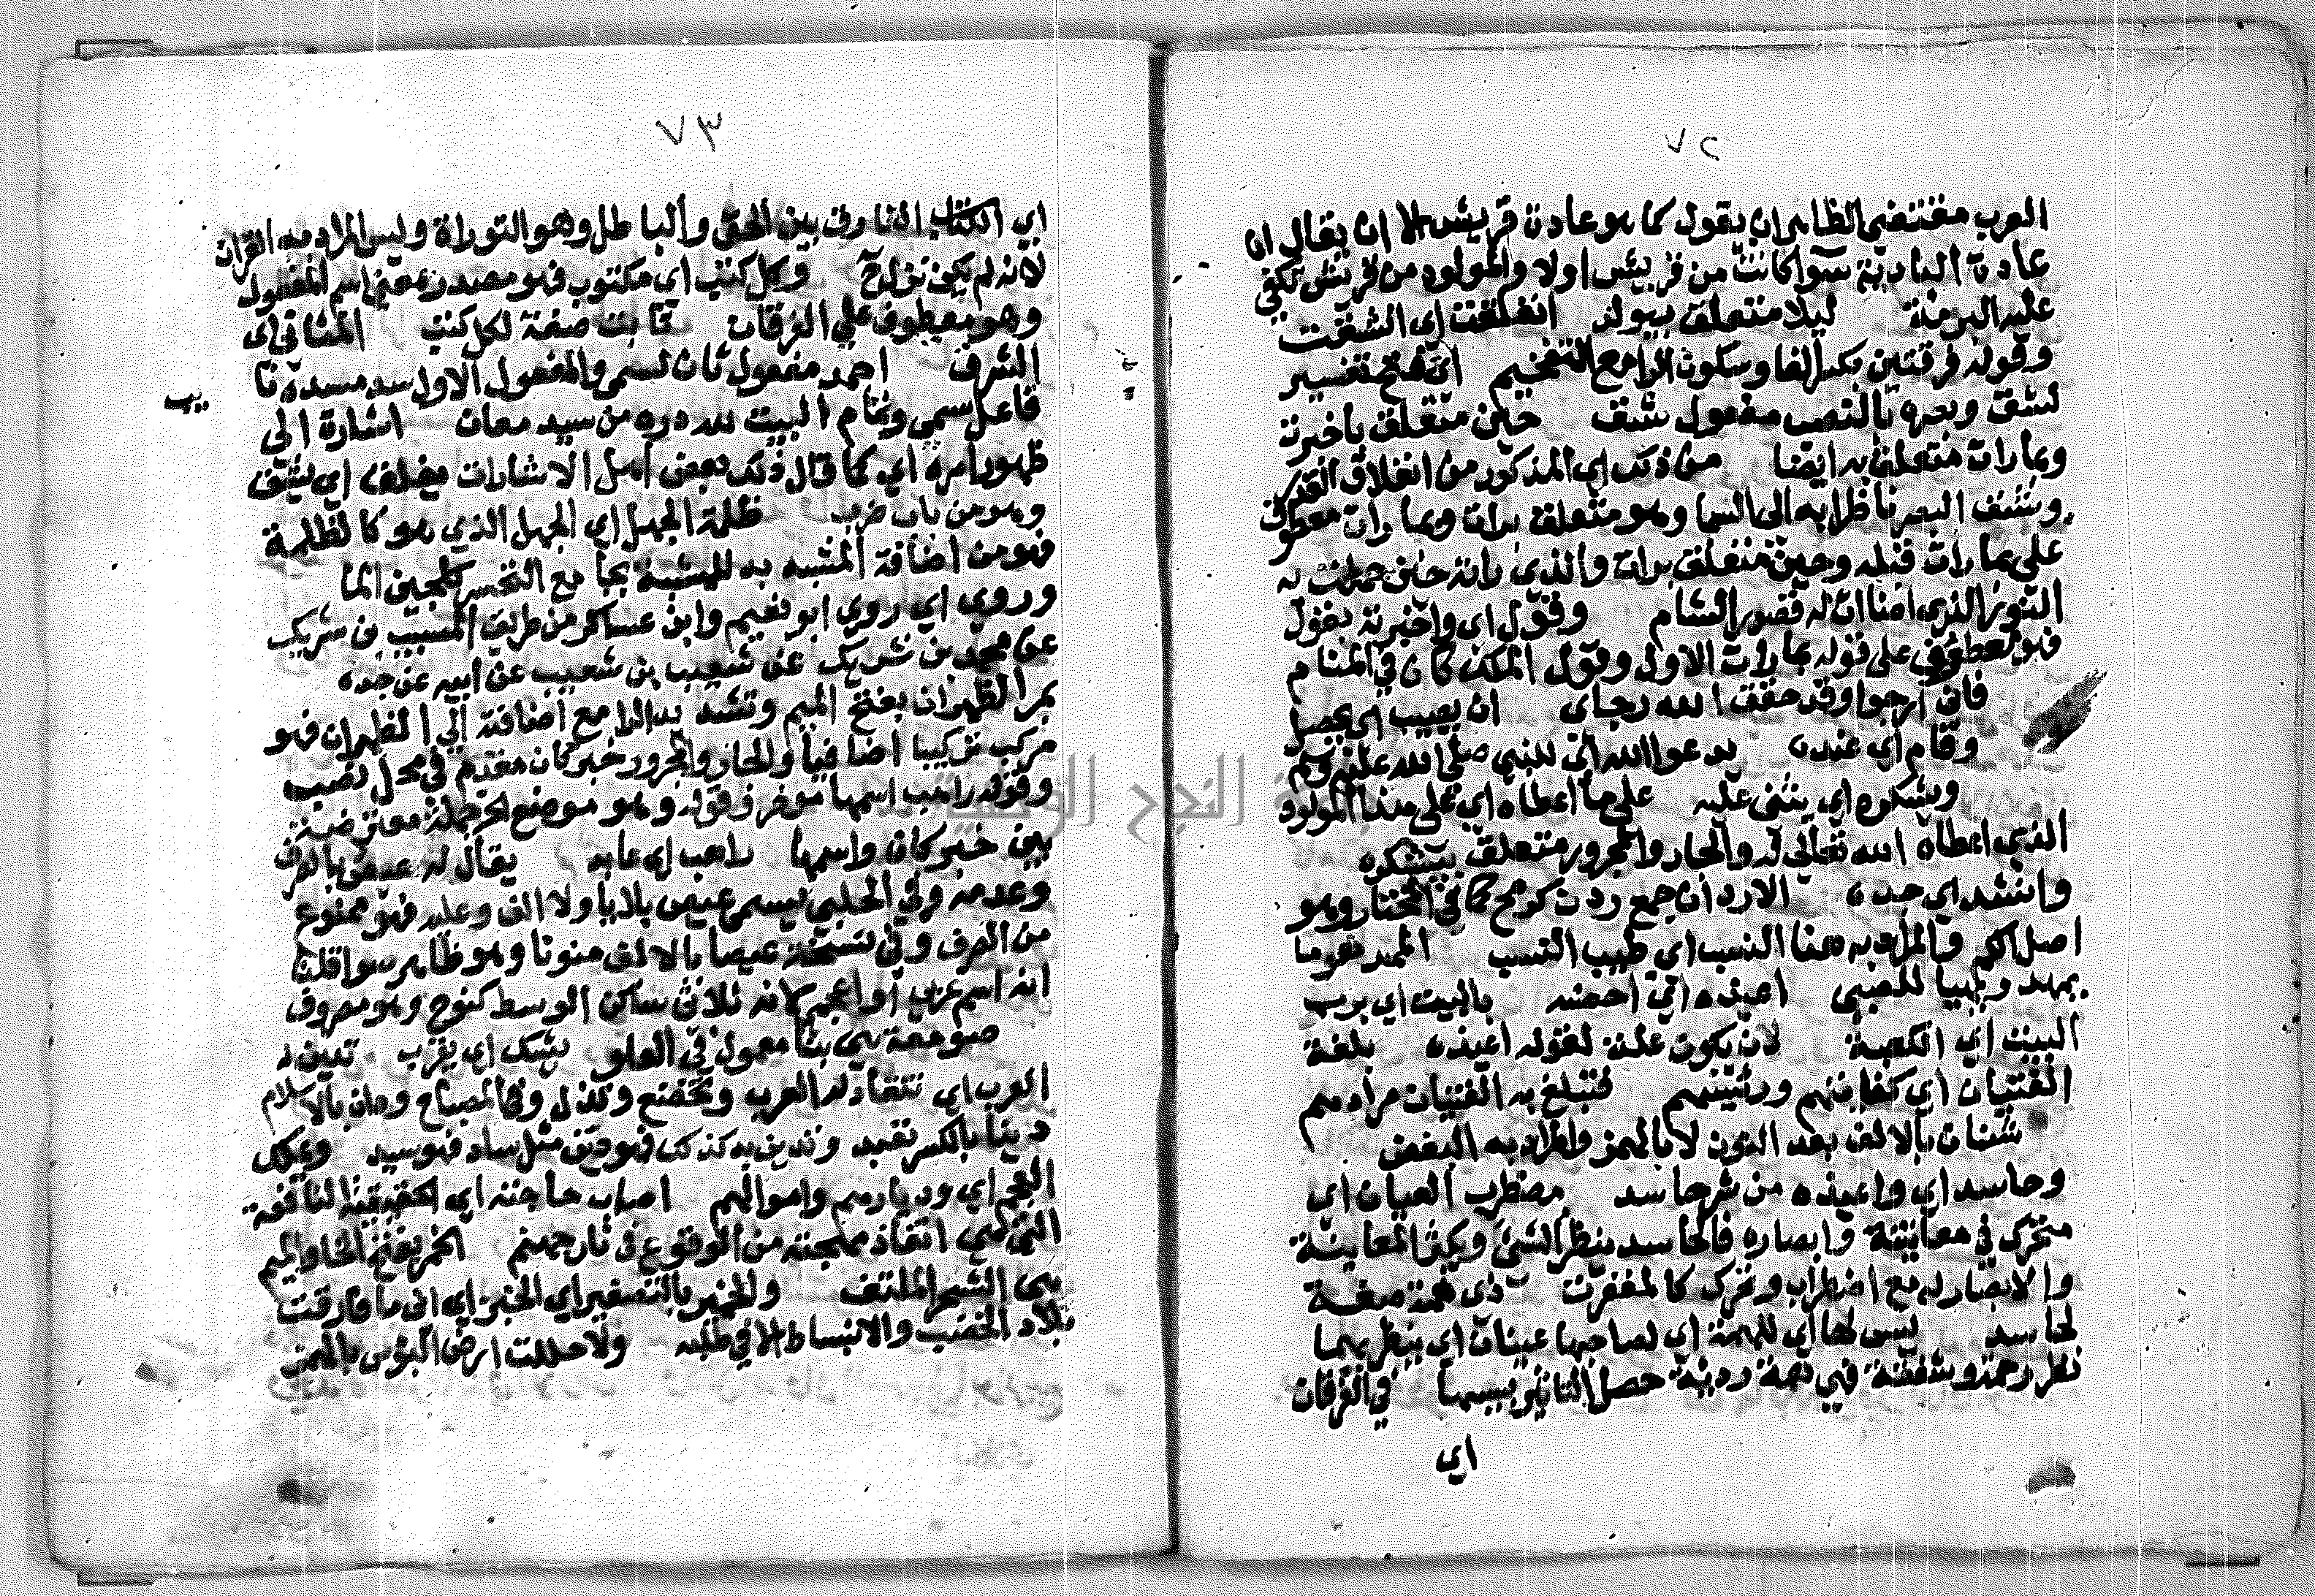 ٧٢
العرب مقتضى الظاهر ان يقول كما هو عادة قريش الا ان يقال ان
عادة البادية سوا كانت من قريش اولا والمولود من قريش تكفي
عليه البرمة ليلا متعلق بيولد انفلقت اي انشقت
وقوله فرقتين بكسر الفا وسكون الرا مع التفخيم اي فتح تفسير
لشق وبصره بالنصب مفعول شق حين متعلق باخبرته
وبما رات متعلق به ايضا من ذلك اي المذكور من انفلاق القدر
وشق البصر ناظرا به الى السما وهو متعلق برات وبما رات معطوف
على بما رات قبله وحين متعلق برات والذي راته حين حملت به
النور الذي اضاات له قصور الشام وقول اي واخبرته بقول
فهو معطوف على قوله بما رات الاول وقول الملك كان في المنام
فاني ارجوا وقد حقق الله رجاى ان يصيب اي يحصل
وقام اي عنده يدعوا الله اي للنبي صلى الله عليه وسلم
ويشكره اي يثني عليه على ما اعطاه اي على هذا المولود
الذي اعطاه الله تعالى له والجار والمجرور متعلق بيشكره
وانشد اي جده الاردان جمع ردن كرمح كما في المختار وهو
اصل الكم والمراد به هنا النسب اي طيب النسب المهد هو ما
يمهد ويهيا للصبي اعيذه اي احصنه بالبيت اي برب
البيت اي الكعبة لان يكون علة لقوله اعيذه بلغة
الفتيان اي كفايتهم ورئيسهم فتبلغ به الفتيان مرادهم
شنان بالالف بعد النون لا بالهمز والمراد به البغض
وحاسد اي واعيذه من شر حاسد مضطرب العيان اي
متحرك في معاينته وابصاره فالحاسد ينظر الشئ ويكثر المعاينة
والابصار له مع اضطراب وتحرك كالمغفرت ذي همة صفة
لحاسد ليس لها اي للهمة اي لصاحبها عينان اي ينظر بهما
نظر رحمة وشفقة فهي همة رديئة حصل التاثير بسببها في الفرقان
اي
٧٣
اي الكتاب الفارق بين الحق والباطل وهو التوراة وليس المراد به القران
لانه لم يكن نزل ح وكل كتب اي مكتوب فهو مصدر بمعنى اسم المفعول
وهو معطوف علي الفرقان ثابت صفة لكل كتب المثاني اى
الشرف احمد مفعول ثان لسمي والمفعول الاول سد مسده نا
يب
فاعل سمي وتمام البيت لله دره من سيد معان اشارة الى
ظهور امره اي كما قال ذلك بعض اهل الاشارات يفلق اي يشق
وهو من باب ضرب ظلمة الجهل اي الجهل الذي هو كالظلمة
فهو من اضافة المشبه به للمشبه بجامع التخس كلجين الما
وروي اي روي ابو نعيم وابن عساكر من طريق المسيب بن شريك
عن محمد بن شريك عن شعيب بن شعيب عن ابيه عن جده
بمر الظهران بفتح الميم وتشديد الرا مع اضافة الى الظهران فهو
مركب تركيبا اضافيا والجار والمجرور خبر كان مقدم في محل نصب
وقوله راهب اسمها موخر وقوله وهو موضع الخ جملة معترضة
بين خبر كان واسمها راهب اي عابد يقال له عيصى بالصرف
وعدمه وفي الحلبي يسمى عيص بلا يا ولا الف وعليه فهو ممنوع
من الصرف وفي نسخة عيصا بالالف منونا وهو ظاهر سوا قلنا
انه اسم عربي او اعجم لانه ثلاثي ساكن الوسط كنوح وهو معروف
صومعة هي بنا معمول في العلو يشك اي يقرب تدين له
العرب اي تنقاد له العرب وتخضع وتذل وفي المصباح ودان بالاسلام
دينا بالكسر تعبد وتدين به كذلك فهو دين مثل ساد فهو سيد ويملك
العجم اي وديارهم واموالهم اصاب حاجته اي الحقيقية النافعة
التي هي انقاذ مهجته من الوقوع في نار جهنم الخمر بفتح الخا والميم
هي الشجر الملتف والخمير بالتصغير اي الخبز اي اني ما فارقت
بلاد الخصب والانبساط الا في طلبه ولا حللت ارض البؤس بالهمز